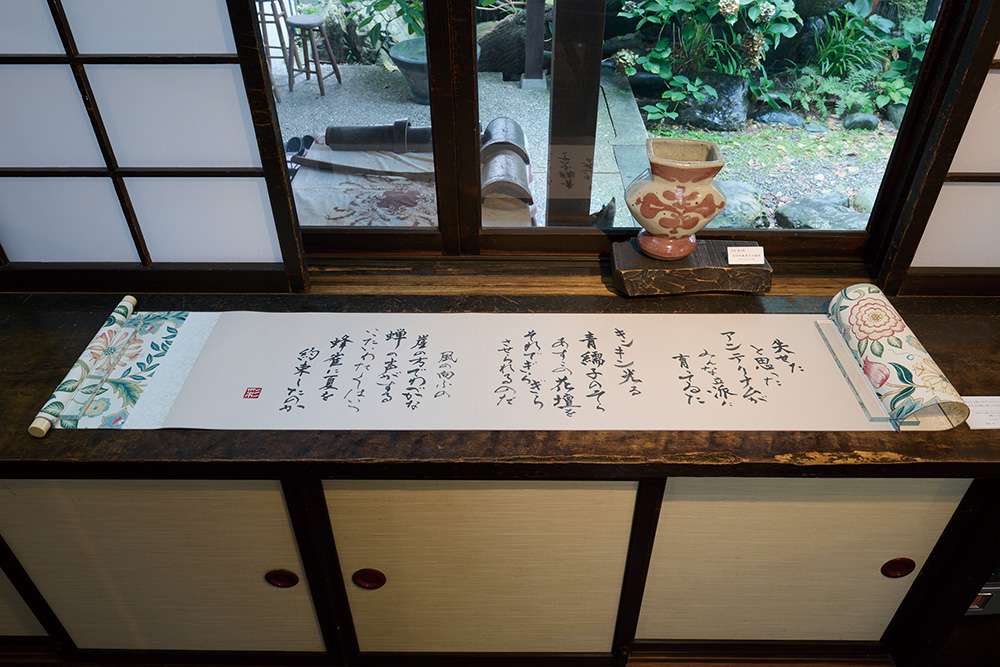 失せた
と思った
アンテリナムが
みな立派に
育ってゐた
キンキン光る
青繻子のそら
あすこの花壇を
それでぎらぎら
させられるのだ
風の向ふの
崖の方でわづかな
蝉の声がする
いったいわたくしはいつ
蜂雀に夏を
約束したのか